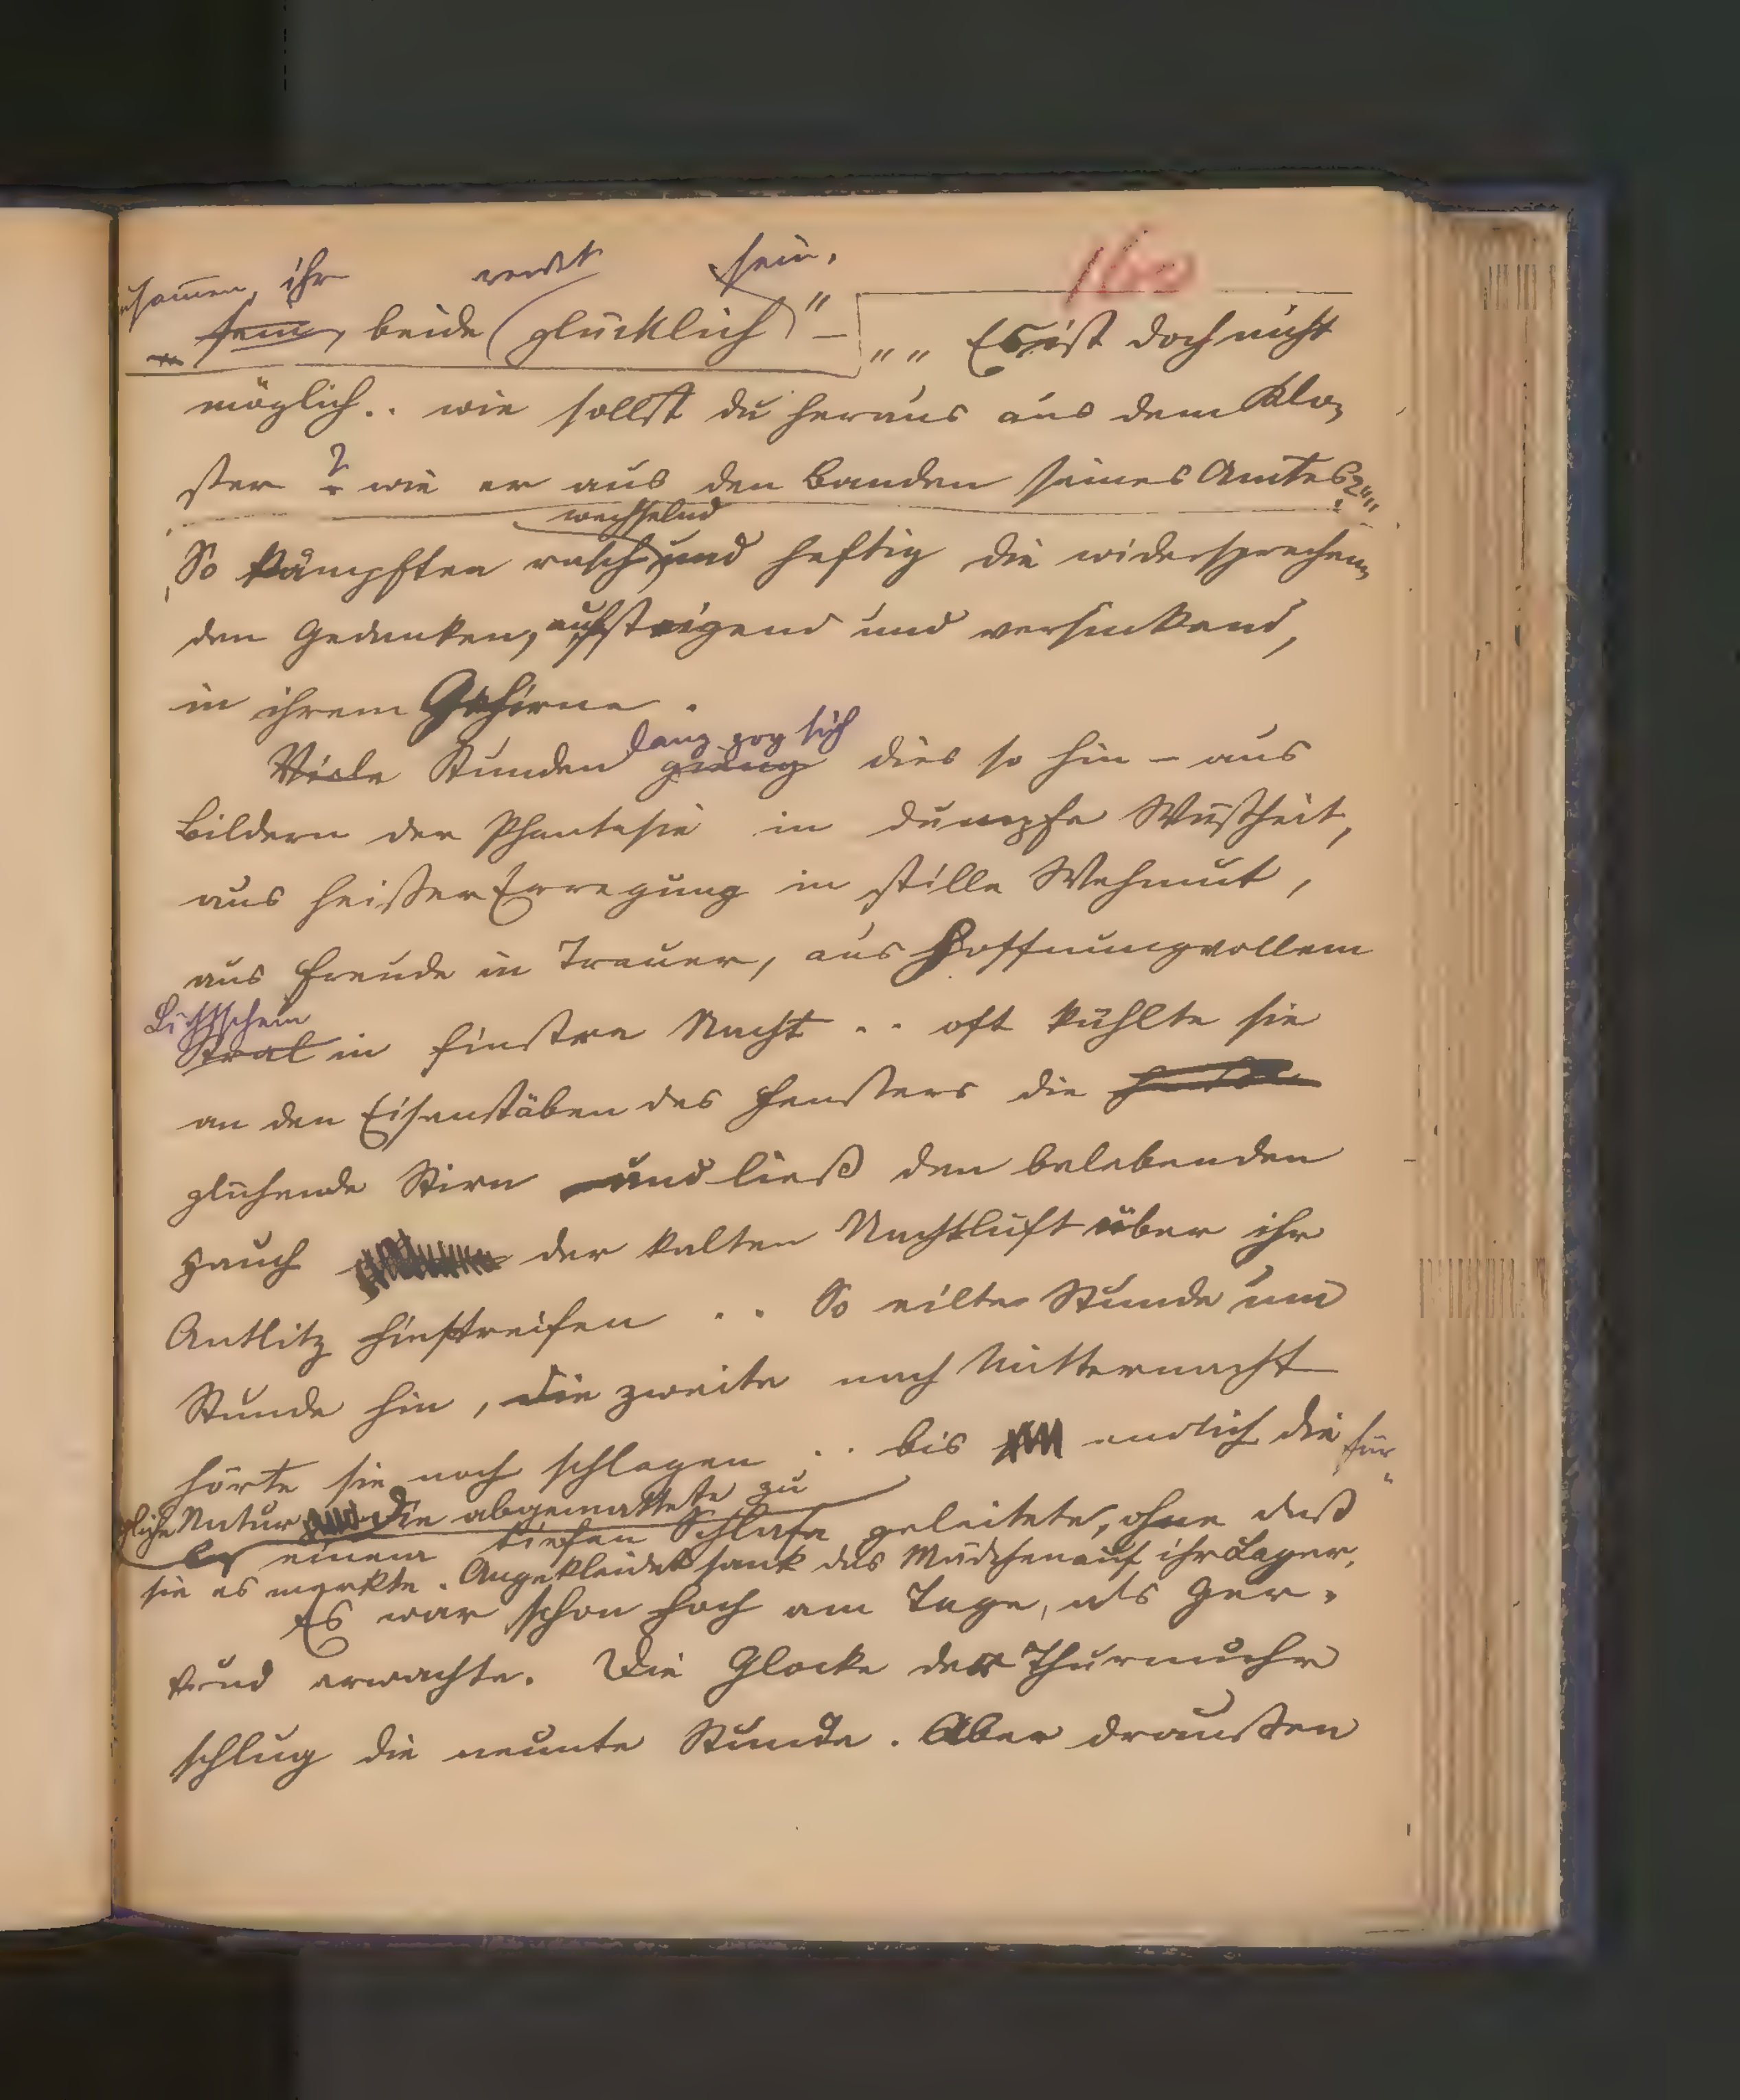 160
sammen, ihr werdet sein.
sein, beide glücklich" – „„ Es ist doch nicht
möglich.. wie sollst du heraus aus dem Klo-
ster ? wie er aus den Banden seines Amtes?""
wechselnd
So kämpften rasch und heftig die widersprechen-
den Gedanken, aufsteigend und versinkend,
in ihrem Gehirne.
lang zog sich
Viele Stunden gieng dies so hin – aus
Bildern der Phantasie in dumpfe Wüstheit,
aus heißer Erregung in stille Wehmut,
aus Freude in Trauer, aus hoffnungvollem
Lichtschein
Stral in finstre Nacht .. oft kühlte sie
an den Eisenstäben des Fensters die
glühende Stirn und ließ den belebenden
Hauch der kalten Nachtluft über ihr
Antlitz hinstreifen .. So eilte Stunde um
Stunde hin, die zweite nach Mitternacht
hörte sie noch schlagen .. bis endlich die für-
gliche Natur die abgemattete zu
einem tiefen Schlafe geleitete, ohne daß
sie es merkte. Angekleidet sank das Mädchen auf ihr Lager.
Es war schon hoch am Tage, als Ger-
trud erwachte. Die Glocke der Thurmuhr
schlug die neunte Stunde. Aber draußen